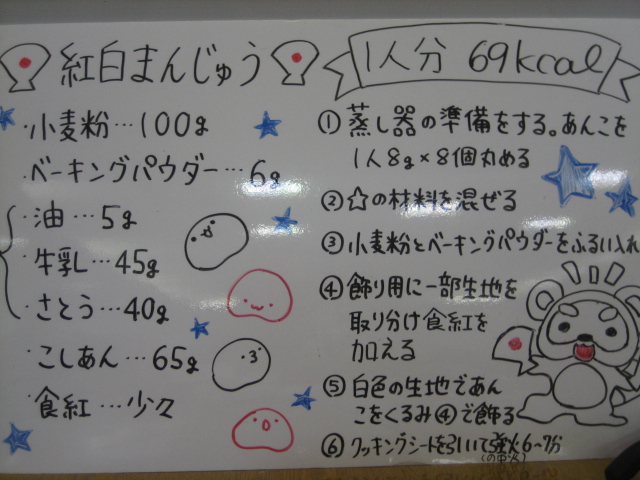 紅白まんじゅう
1人分 69kcal
・小麦粉…100g
・ベーキングパウダー…6g
・油…5g
・牛乳…45g
・さとう…40g
・こしあん…65g
・食紅…少々
①蒸し器の準備をする。あんこを
1人8g×8個丸める
②☆の材料を混ぜる
③小麦粉とベーキングパウダーをふるい入れ
④飾り用に一部生地を
取り分け食紅を
加える
⑤白色の生地であん
こをくるみ④で飾る
⑥クッキングシートを引いて強火6~7分